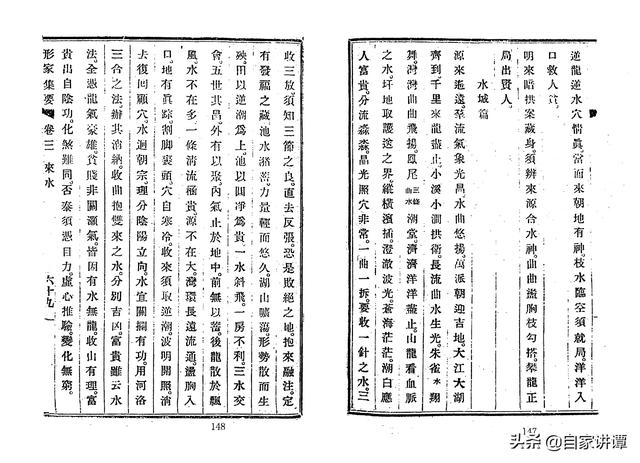 逆龍逆水穴情眞。當面來朝地有神。枝水臨空須就局。洋洋入
口救人貧。
明來暗拱案藏身。須辨來源合水神。曲曲盪胸枝勾搭。榮龍正
局出賢人。
水城篇
源來遙遠。羣流氣象光昌。水曲悠揚。萬派朝迎吉地。大江大湖
齊到千里來龍盡止。小溪小澗拱衛。長流曲水生光。朱雀水翔
舞灣灣曲曲飛揚。鳳尾三條曲水潮堂。濟濟洋洋盡止。山龍看血脈
之水。圩地取護送之界。縱橫濱插。澄澈波光。蒼海茫茫。潮白應
人富貴。分流淼淼。晶光照穴非常。一曲一拆要收一針之水。三
147
收三放。須知三節之良。直去反張。恐是敗絕之地。抱來融注。定
有發福之藏。池水豬蓄。力量輕而悠久。湖山曠蕩。形勢散而生
殃。田以逆潮爲上。池以圓淨爲貴。一水斜飛。一房不利。三水交
會。五世其昌。外有以聚。內氣止於地中。前無以蓄。後龍散於飄
風。水不在多。一條清流極貴。源不在大。灣環清通。盪胸入
口。地有眞踪。割脚裹頭。穴自寒冷。收來須取逆潮。波明開照。消
去復回顧穴。水迴朝宗。理分陰陽立向。水宜關攔有功。用河洛
三合之法。辦其消納。收曲抱雙來之水。分別吉凶。富貴雖云水
法。全憑龍氣豪雄。貧賤非關灝氣。皆因有水無龍。收山有理。富
貴出自陰功。化煞難同否泰。須憑目力。虛心推驗。變化無窮。
形家集要 卷三 來水 六十九
148
头条 @自家讲谭